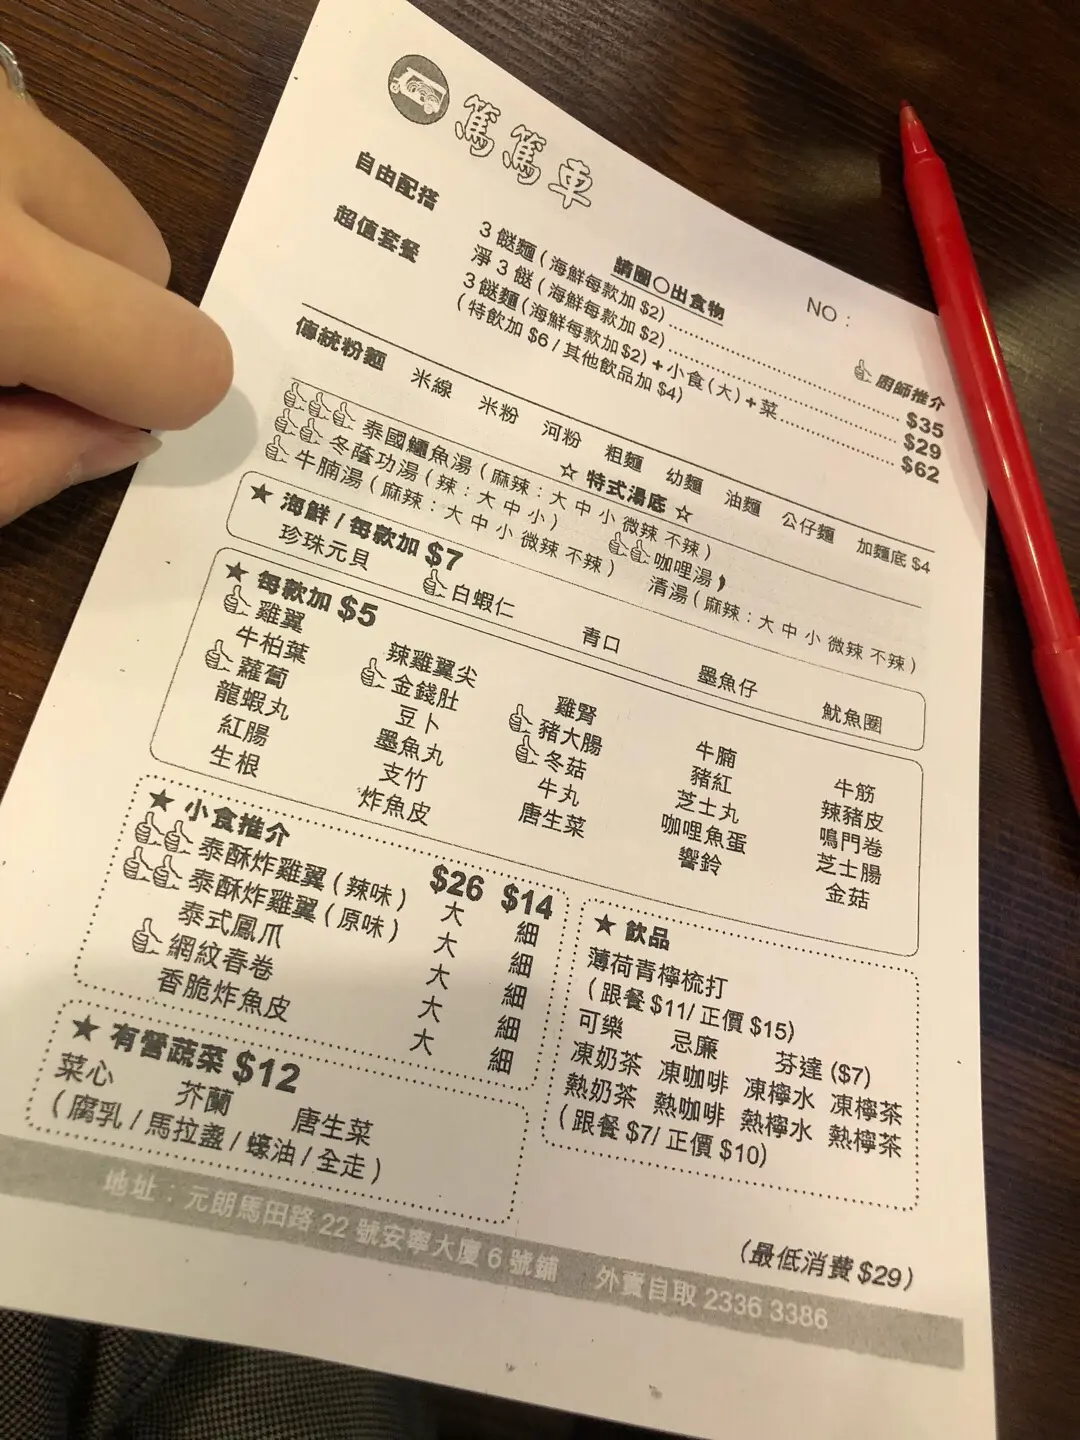 篤篤車
請圈○出食物
NO：
廚師推介
自由配搭
3 餸麵 ( 海鮮每款加 $2) .......... $35
淨 3 餸 ( 海鮮每款加 $2) .......... $29
超值套餐
3 餸麵 (海鮮每款加$2) + 小食 ( 大 ) + 菜 .......... $62
( 特飲加 $6 / 其他飲品加 $4)
傳統粉麵 米線 米粉 河粉 粗麵 幼麵 油麵 公仔麵 加麵底 $4
☆ 特式湯底 ☆
泰國鱷魚湯 ( 麻辣：大 中 小 微辣 不辣 )
冬蔭功湯 ( 辣：大 中 小 ) 咖喱湯
牛腩湯 ( 麻辣：大 中 小 微辣 不辣 ) 清湯 ( 麻辣：大 中 小 微辣 不辣 )
★ 海鮮 / 每款加 $7
珍珠元貝 白蝦仁 青口 墨魚仔 魷魚圈
★ 每款加 $5
雞翼 辣雞翼尖 雞腎 牛腩 牛筋
牛柏葉 金錢肚 豬大腸 豬紅 辣豬皮
蘿蔔 豆卜 冬菇 芝士丸 鳴門卷
龍蝦丸 墨魚丸 牛丸 咖哩魚蛋 芝士腸
紅腸 支竹 唐生菜 響鈴 金菇
生根 炸魚皮
★ 小食推介 $26 $14
泰酥炸雞翼 ( 辣味 ) 大 細
泰酥炸雞翼 ( 原味 ) 大 細
泰式鳳爪 大 細
網紋春卷 大 細
香脆炸魚皮 大 細
★ 有營蔬菜 $12
菜心 芥蘭 唐生菜
( 腐乳 / 馬拉盞 / 蠔油 / 全走 )
★ 飲品
薄荷青檸梳打
( 跟餐 $11/ 正價 $15)
可樂 忌廉 芬達 ($7)
凍奶茶 凍咖啡 凍檸水 凍檸茶
熱奶茶 熱咖啡 熱檸水 熱檸茶
( 跟餐 $7/ 正價 $10)
(最低消費 $29)
地址：元朗馬田路 22 號安寧大廈 6 號鋪 外賣自取 2336 3386